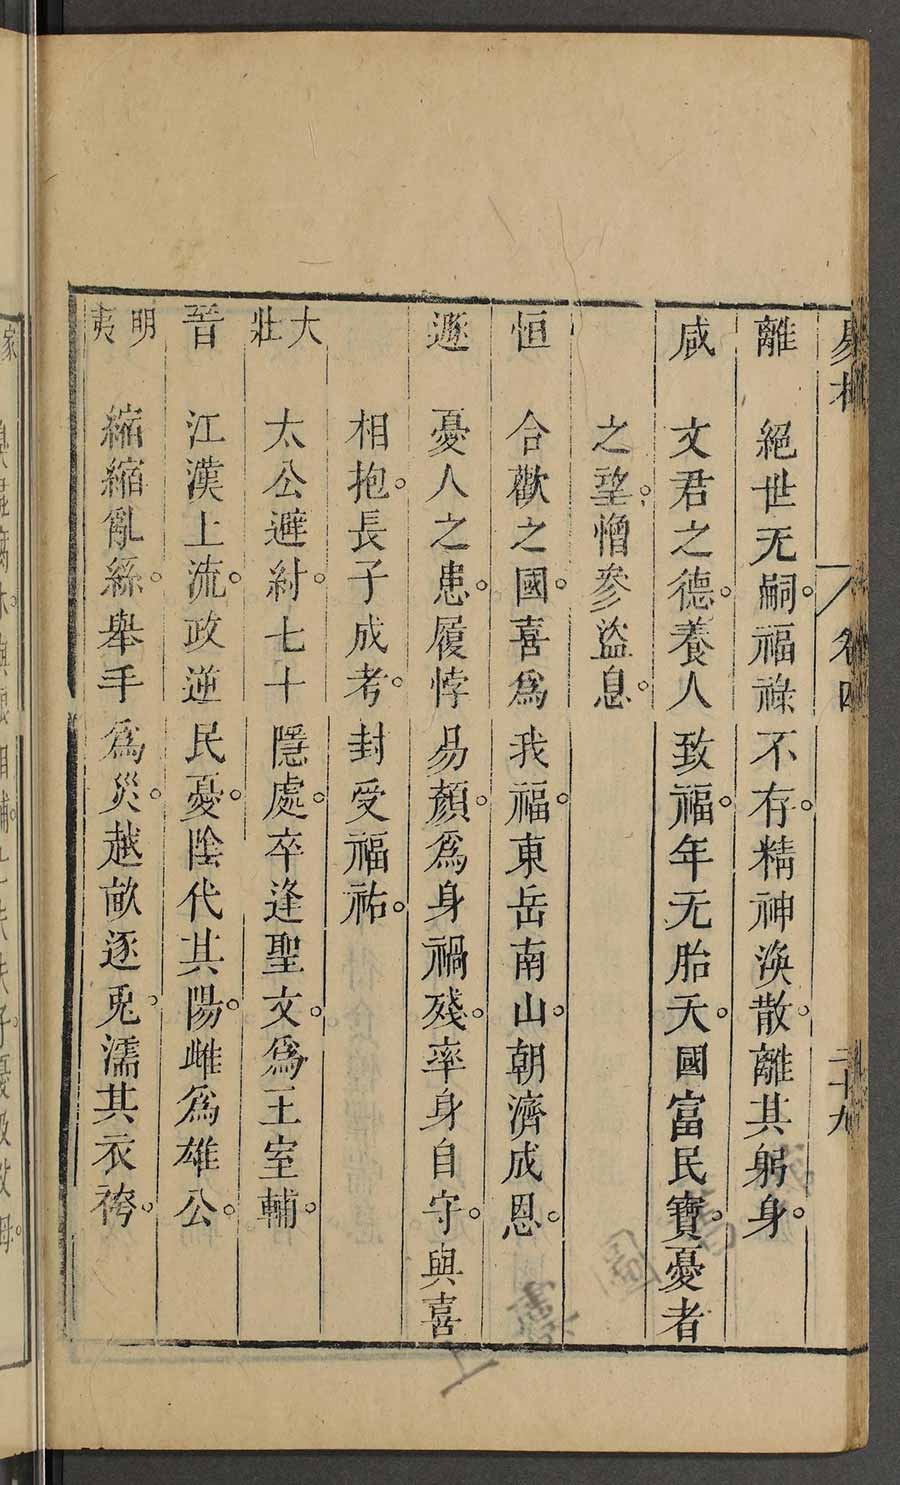 易林 卷四 二十九
離 絕世无嗣。福祿不存。精神渙散。離其躬身。
咸 文君之德。養人致福。年无胎夭。國富民寶。憂者
之望。憎參盜息。
恒 合歡之國。喜爲我福。東岳南山。朝濟成恩。
遯 憂人之患。履悖易顏。爲身禍殘。率身自守。與喜
相抱。長子成考。封受福祐。
大壯 太公避紂。七十隱處。卒逢聖文。爲王室輔。
晉 江漢上流。政逆民憂。陰代其陽。雌爲雄公。
明夷 縮縮亂絲。舉手爲災。越畝逐兎。濡其衣袴。